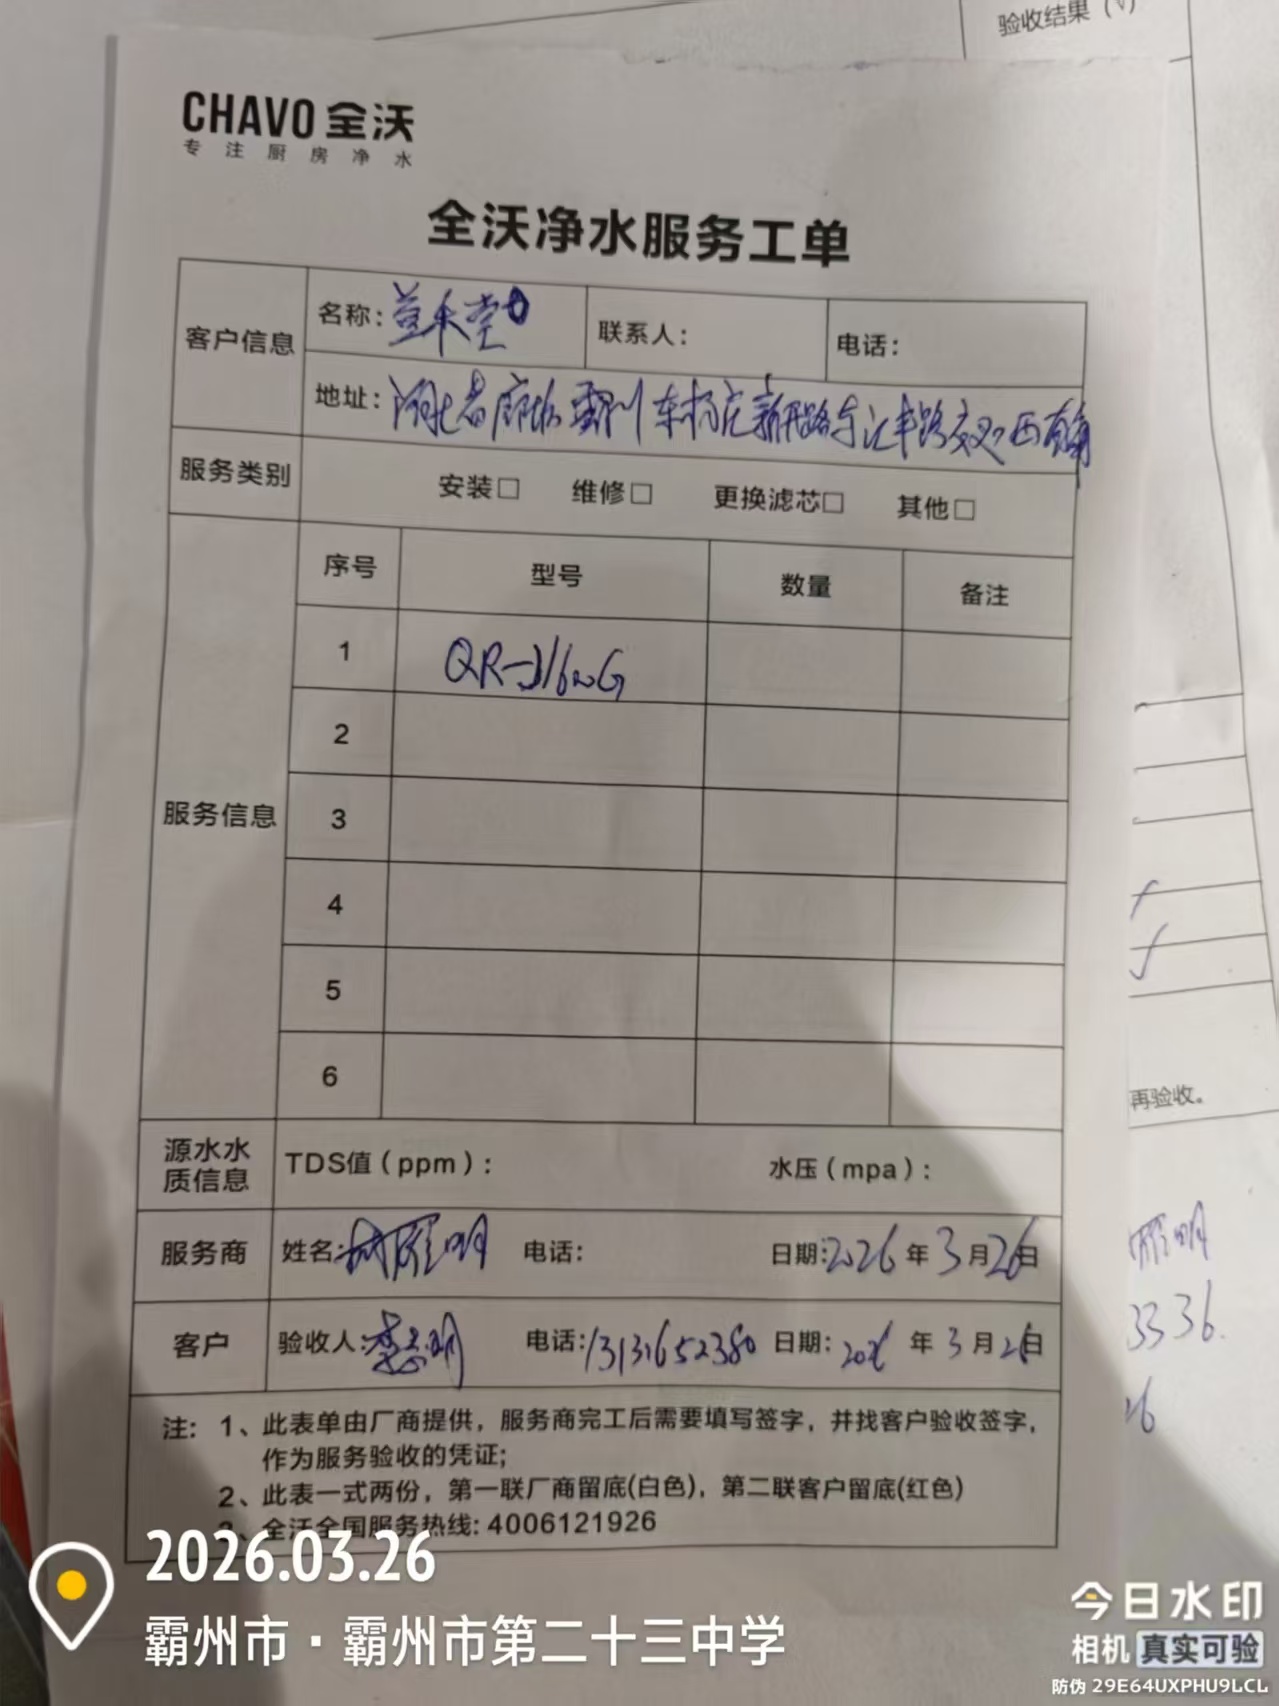 验收结果（√）
CHAVO 全沃
专注厨房净水
全沃净水服务工单
客户信息 名称： 联系人： 电话：
地址：河北省廊坊霸州东杨庄新开路与汇丰路交叉口西南角
服务类别 安装□ 维修□ 更换滤芯□ 其他□
服务信息 序号 型号 数量 备注
1
2
3
4
5
6
再验收。
源水水质信息 TDS值（ppm）： 水压（mpa）：
服务商 姓名： 电话： 日期：2026年3月26日
客户 验收人： 电话：13131652380 日期：2026年3月26日
3336.
26
注：1、此表单由厂商提供，服务商完工后需要填写签字，并找客户验收签字，
作为服务验收的凭证；
2、此表一式两份，第一联厂商留底(白色)，第二联客户留底(红色)
3、全沃全国服务热线: 4006121926
2026.03.26
霸州市·霸州市第二十三中学
今日水印
相机 真实可验
防伪 29E64UXPHU9LCL